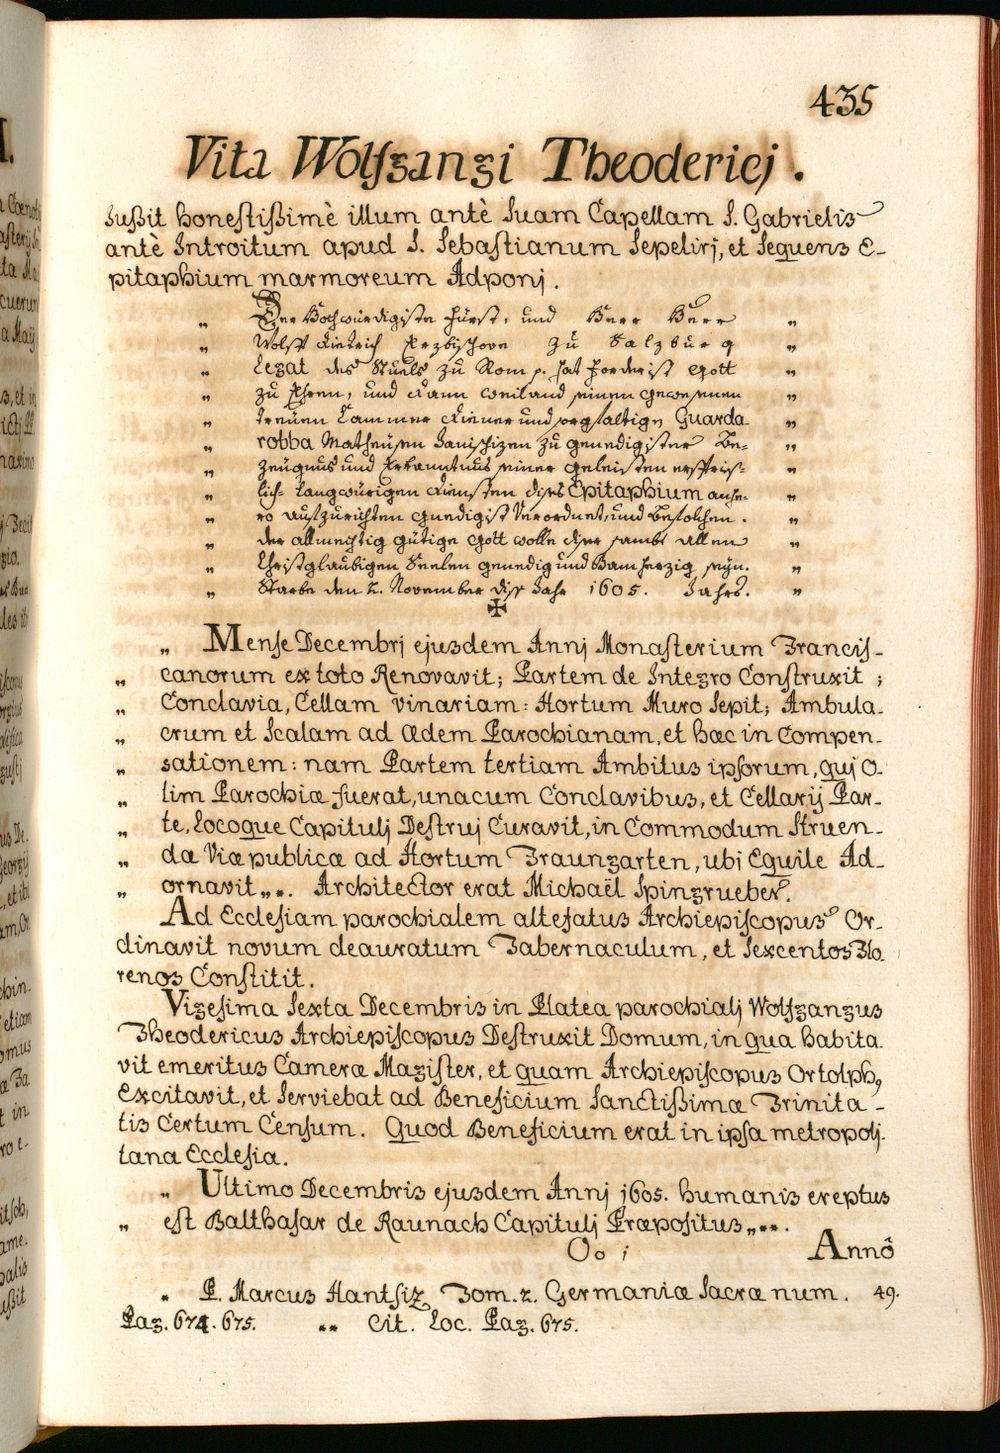 435
Vita Wolfgangi Theodericj.
Jußit honestißimè illum antè Suam Capellam S. Gabrielis
antè Introitum apud S. Sebastianum Sepelirj, et Sequens E-
pitaphium marmoreum Adponj.
„ Der Hochwürdigiste Fürst, und Herr Herr „
„ Wolff Dietrich Erzbischove zu Salzburg „
„ Legat des Stuels zu Rom p. hat Forderist Gott „
„ zu Ehren, und dann weiland seinen gewesenen „
„ treüen Cammer Diener und sorgfaltigen Guarda- „
„ robba Matheüsen Janschizen zu genedigister Be= „
„ zeügnus und Erkanntnus seiner geleisten erspries= „
„ lich= Langwürigen Diensten dises Epitaphium anhe- „
„ ro aufzurichten gnedigist Verordnet, und Befolchen. „
„ der allmechtig gütige Gott wolle diser sambt allen „
„ Christglaubigen Seelen genedig und Barmherzig seyn. „
„ Starbe den 2. November diss Jahr 1605. Jahrs. „
✠
„ Mense Decembrj ejusdem Annj Monasterium Francis-
„ canorum ex toto Renovavit; Partem de Integro Construxit;
„ Conclavia, Cellam vinariam: Hortum Muro Sepit; Ambula-
„ crum et Scalam ad Ædem Parochianam, et hæc in Compen-
„ sationem: nam Partem tertiam Ambitus ipsorum, quj O-
„ lim Parochiæ fuerat, unacum Conclavibus, et Cellarij Par-
„ te, Locoque Capitulj Destruj Curavit, in Commodum Struen-
„ dæ Viæ publicæ ad Hortum Fraungarten, ubi Equile Ad-
„ ornavit „*. Architector erat Michaël Spingrueber.
Ad Ecclesiam parochialem altefatus Archiepiscopus Or-
dinavit novum deauratum Tabernaculum, et Sexcentos Flo-
renos Constitit.
Vigesima Sexta Decembris in Platea parochialj Wolfgangus
Theodericus Archiepiscopus Destruxit Domum, in qua habita-
vit emeritus Cameræ Magister, et quam Archiepiscopus Ortolph9
Excitavit, et Serviebat ad Beneficium Sanctißimæ Trinita-
tis Certum Censum. Quod Beneficium erat in ipsa metropolj-
tana Ecclesia.
„ Ultimo Decembris ejusdem Annj 1605. humanis ereptus
„ est Balthasar de Raunach Capitulj Præpositus „**.
Oo i Annô
* P. Marcus Hansiz, Tom. 2. Germaniæ Sacræ num. 49.
Pag. 674. 675. ** Cit. Loc. Pag. 675.